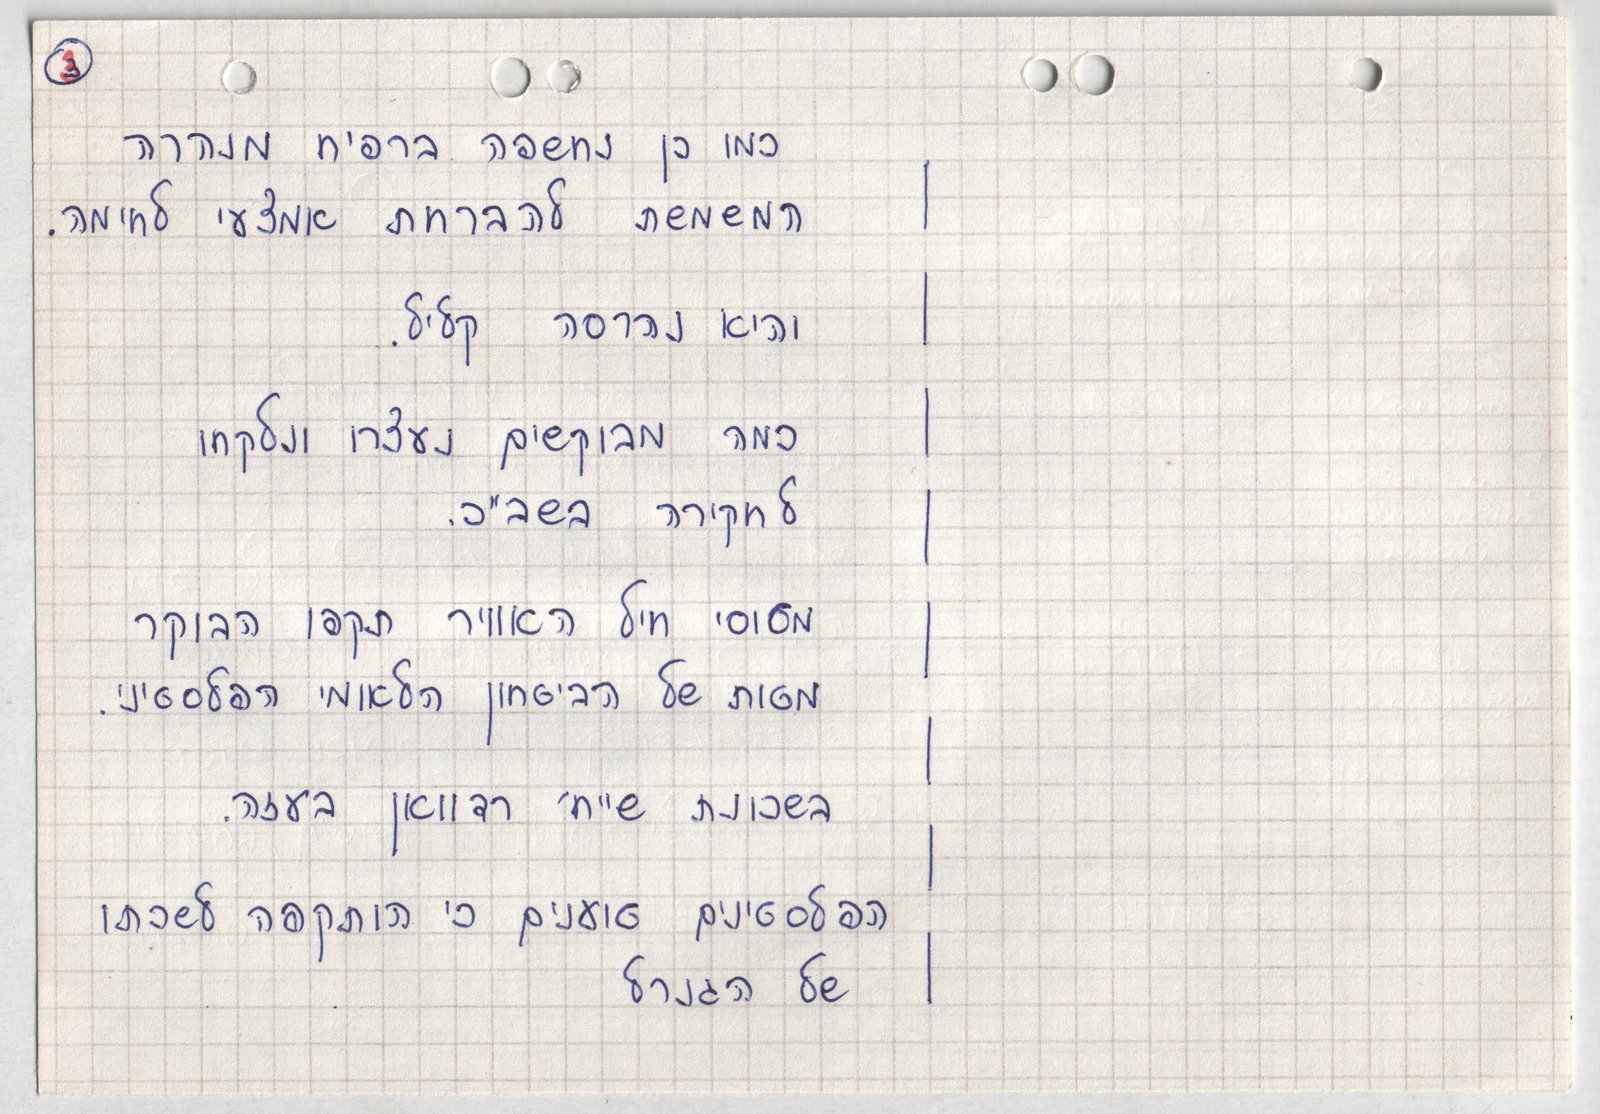 3
כמו כן נחשפה ברפיח מנהרה
המשמשת להברחת אמצעי לחימה.
והיא נהרסה קליל.
כמה מבוקשים נעצרו ונלקחו
לחקירה בשב"כ.
מטוסי חיל האוויר תקפו הבוקר
מטות של הביטחון הלאומי הפלסטיני.
בשכונת שייח' רדוואן בעזה.
הפלסטינים טוענים כי הותקפה לשכתו
של הגנרל